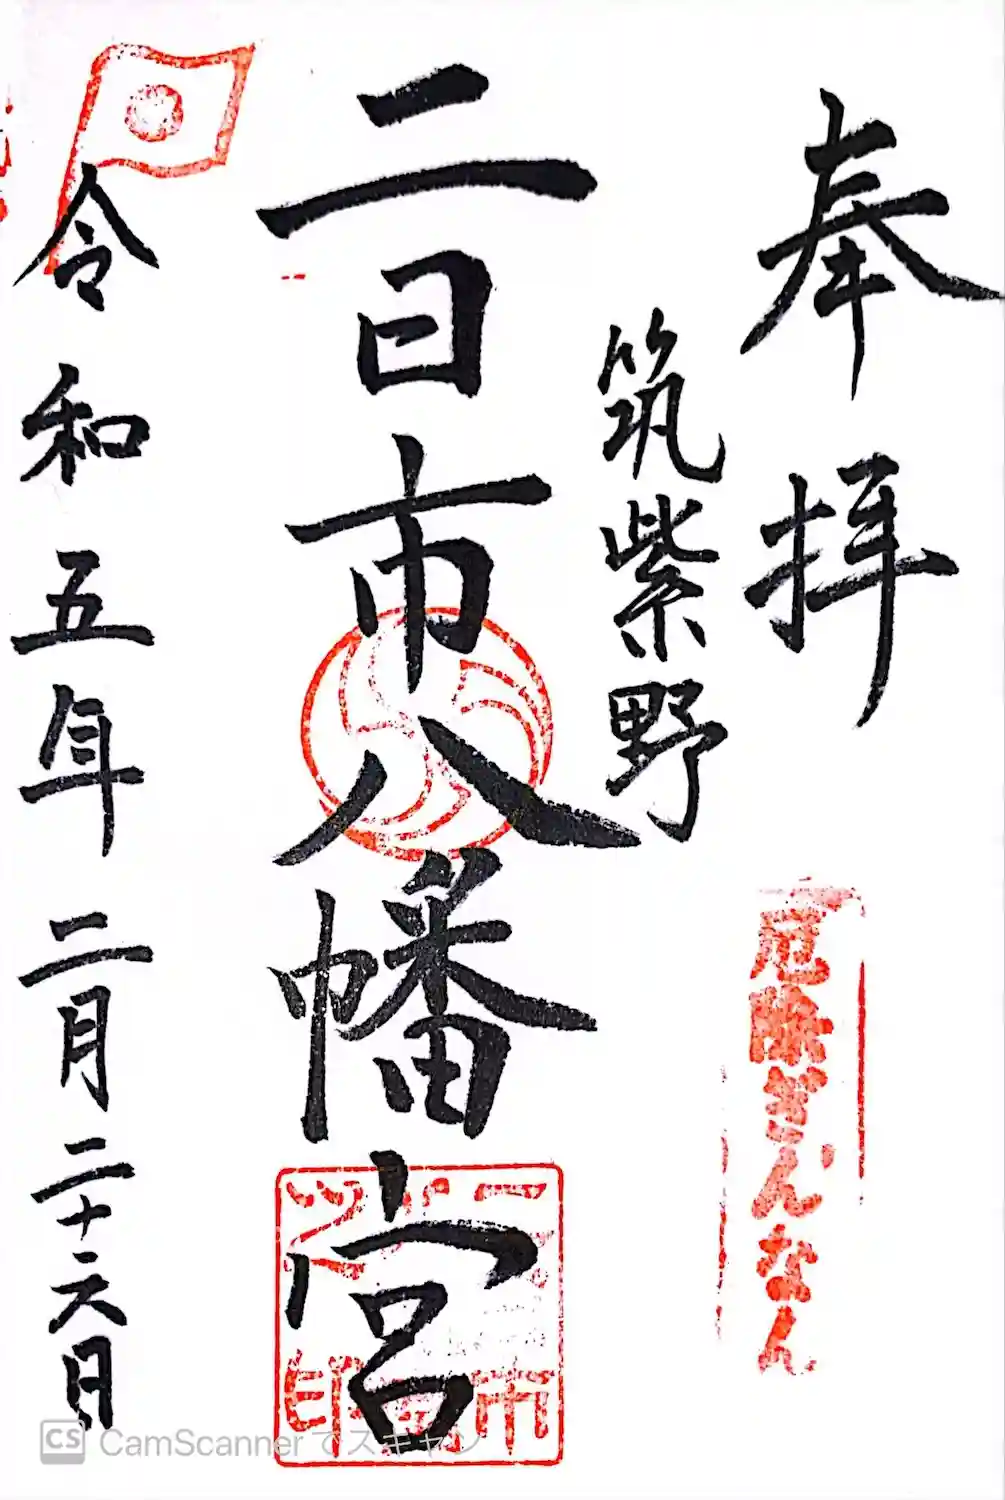 奉拝
厄除ぎんなん
筑紫野
二日市八幡宮
令和五年二月二十六日
CS CamScanner でスキャン